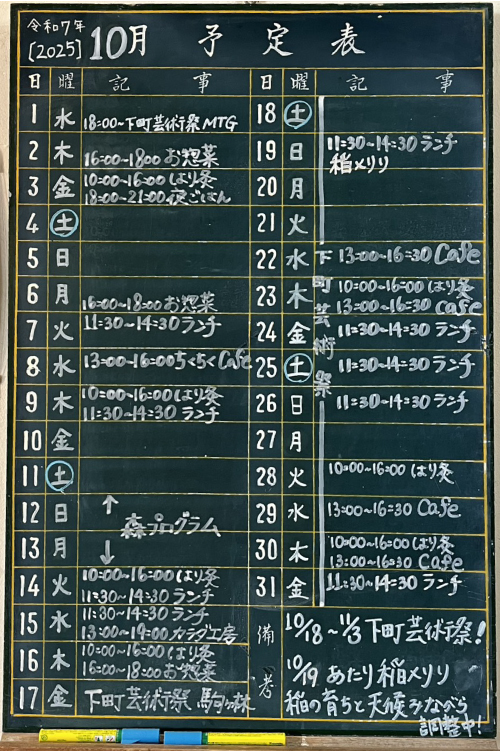 令和7年
[2025] 10月 予定表
日 曜 記 事
1 水 18:00~下町芸術祭 MTG
2 木 16:00~18:00 お惣菜
3 金 10:00~16:00 はり灸
18:00~21:00 夜ごはん
4 土
5 日
6 月 16:00~18:00 お惣菜
7 火 11:30~14:30 ランチ
8 水 13:00~16:00 ちくちくCafe
9 木 10:00~16:00 はり灸
11:30~14:30 ランチ
10 金
11 土
12 日 ↑
森プログラム
13 月 ↓
14 火 10:00~16:00 はり灸
11:30~14:30 ランチ
15 水 11:30~14:30 ランチ
13:00~19:00 カラダ工房
16 木 10:00~16:00 はり灸
16:00~18:00 お惣菜
17 金 下町芸術祭 駒ヶ林
日 曜 記 事
18 土
19 日 11:30~14:30 ランチ
稲メリリ
20 月
21 火
下町芸術祭
22 水 13:00~16:30 Cafe
23 木 10:00~16:00 はり灸
13:00~16:30 Cafe
24 金 11:30~14:30 ランチ
25 土 11:30~14:30 ランチ
26 日 11:30~14:30 ランチ
27 月
28 火 10:00~16:00 はり灸
29 水 13:00~16:30 Cafe
30 木 10:00~16:00 はり灸
13:00~16:30 Cafe
31 金 11:30~14:30 ランチ
備考
10/18~11/3 下町芸術祭!
10/19 あたり稲メリリ
稲の育ちと天候みながら
調整中!